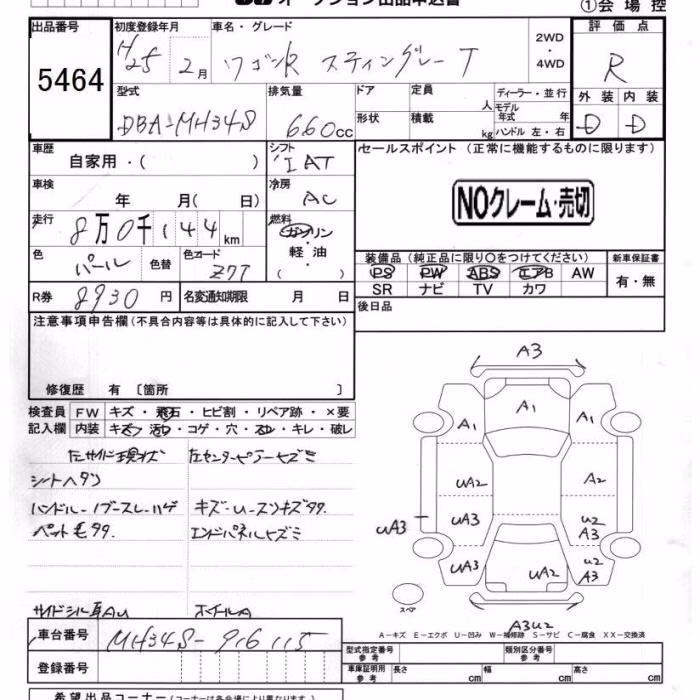 オークション出品申込書
①会場控
出品番号 初度登録年月 車名・グレード 評価点
5464 H25 2月 ワゴンR スティングレーT 2WD・4WD R
型式 排気量 ドア 定員 人 ディーラー・並行 外装 内装
DBA-MH34S 660cc 形状 積載 kg モデル年式 年 ハンドル 左・右 D D
車歴 自家用・( ) シフト IAT セールスポイント (正常に機能するものに限ります)
車検 年 月( 日) 冷房 AC
NOクレーム・売切
走行 8万0千144km 燃料 ガソリン 軽油 ( )
色 パール 色替 色カラード Z7T
装備品(純正品に限り○をつけてください) 新車保証書
PS PW ABS エアB AW 有・無
SR ナビ TV カワ
R券 8930円 名変通知期限 月 日
後日品
注意事項申告欄(不具合内容等は具体的に記入して下さい)
修復歴 有 〔箇所 〕
検査員 FW キズ・飛石・ヒビ割・リペア跡・×要
記入欄 内装 キズ・汚レ・コゲ・穴・スレ・キレ・破レ
左サイド現状 左センターピラーヒズミ
シートヘタリ
ハンドル-ノブースレ-ハゲ
ペット毛有. エンドパネルヒズミ
ホイールA
A3
A1 A1 A1
UA2 A2
UA3 UA3 U2 A3
UA3 UA2 U2 A3
スペア
A3U2
A-キズ E-エクボ U-凹み W-補修跡 S-サビ C-腐食 XX-交換済
車台番号 MH34S-916115
登録番号
型式指定番号 参考 類別区分番号 参考
車庫証明用 参考 長さ cm 幅 cm 高さ cm
希望出品コーナー